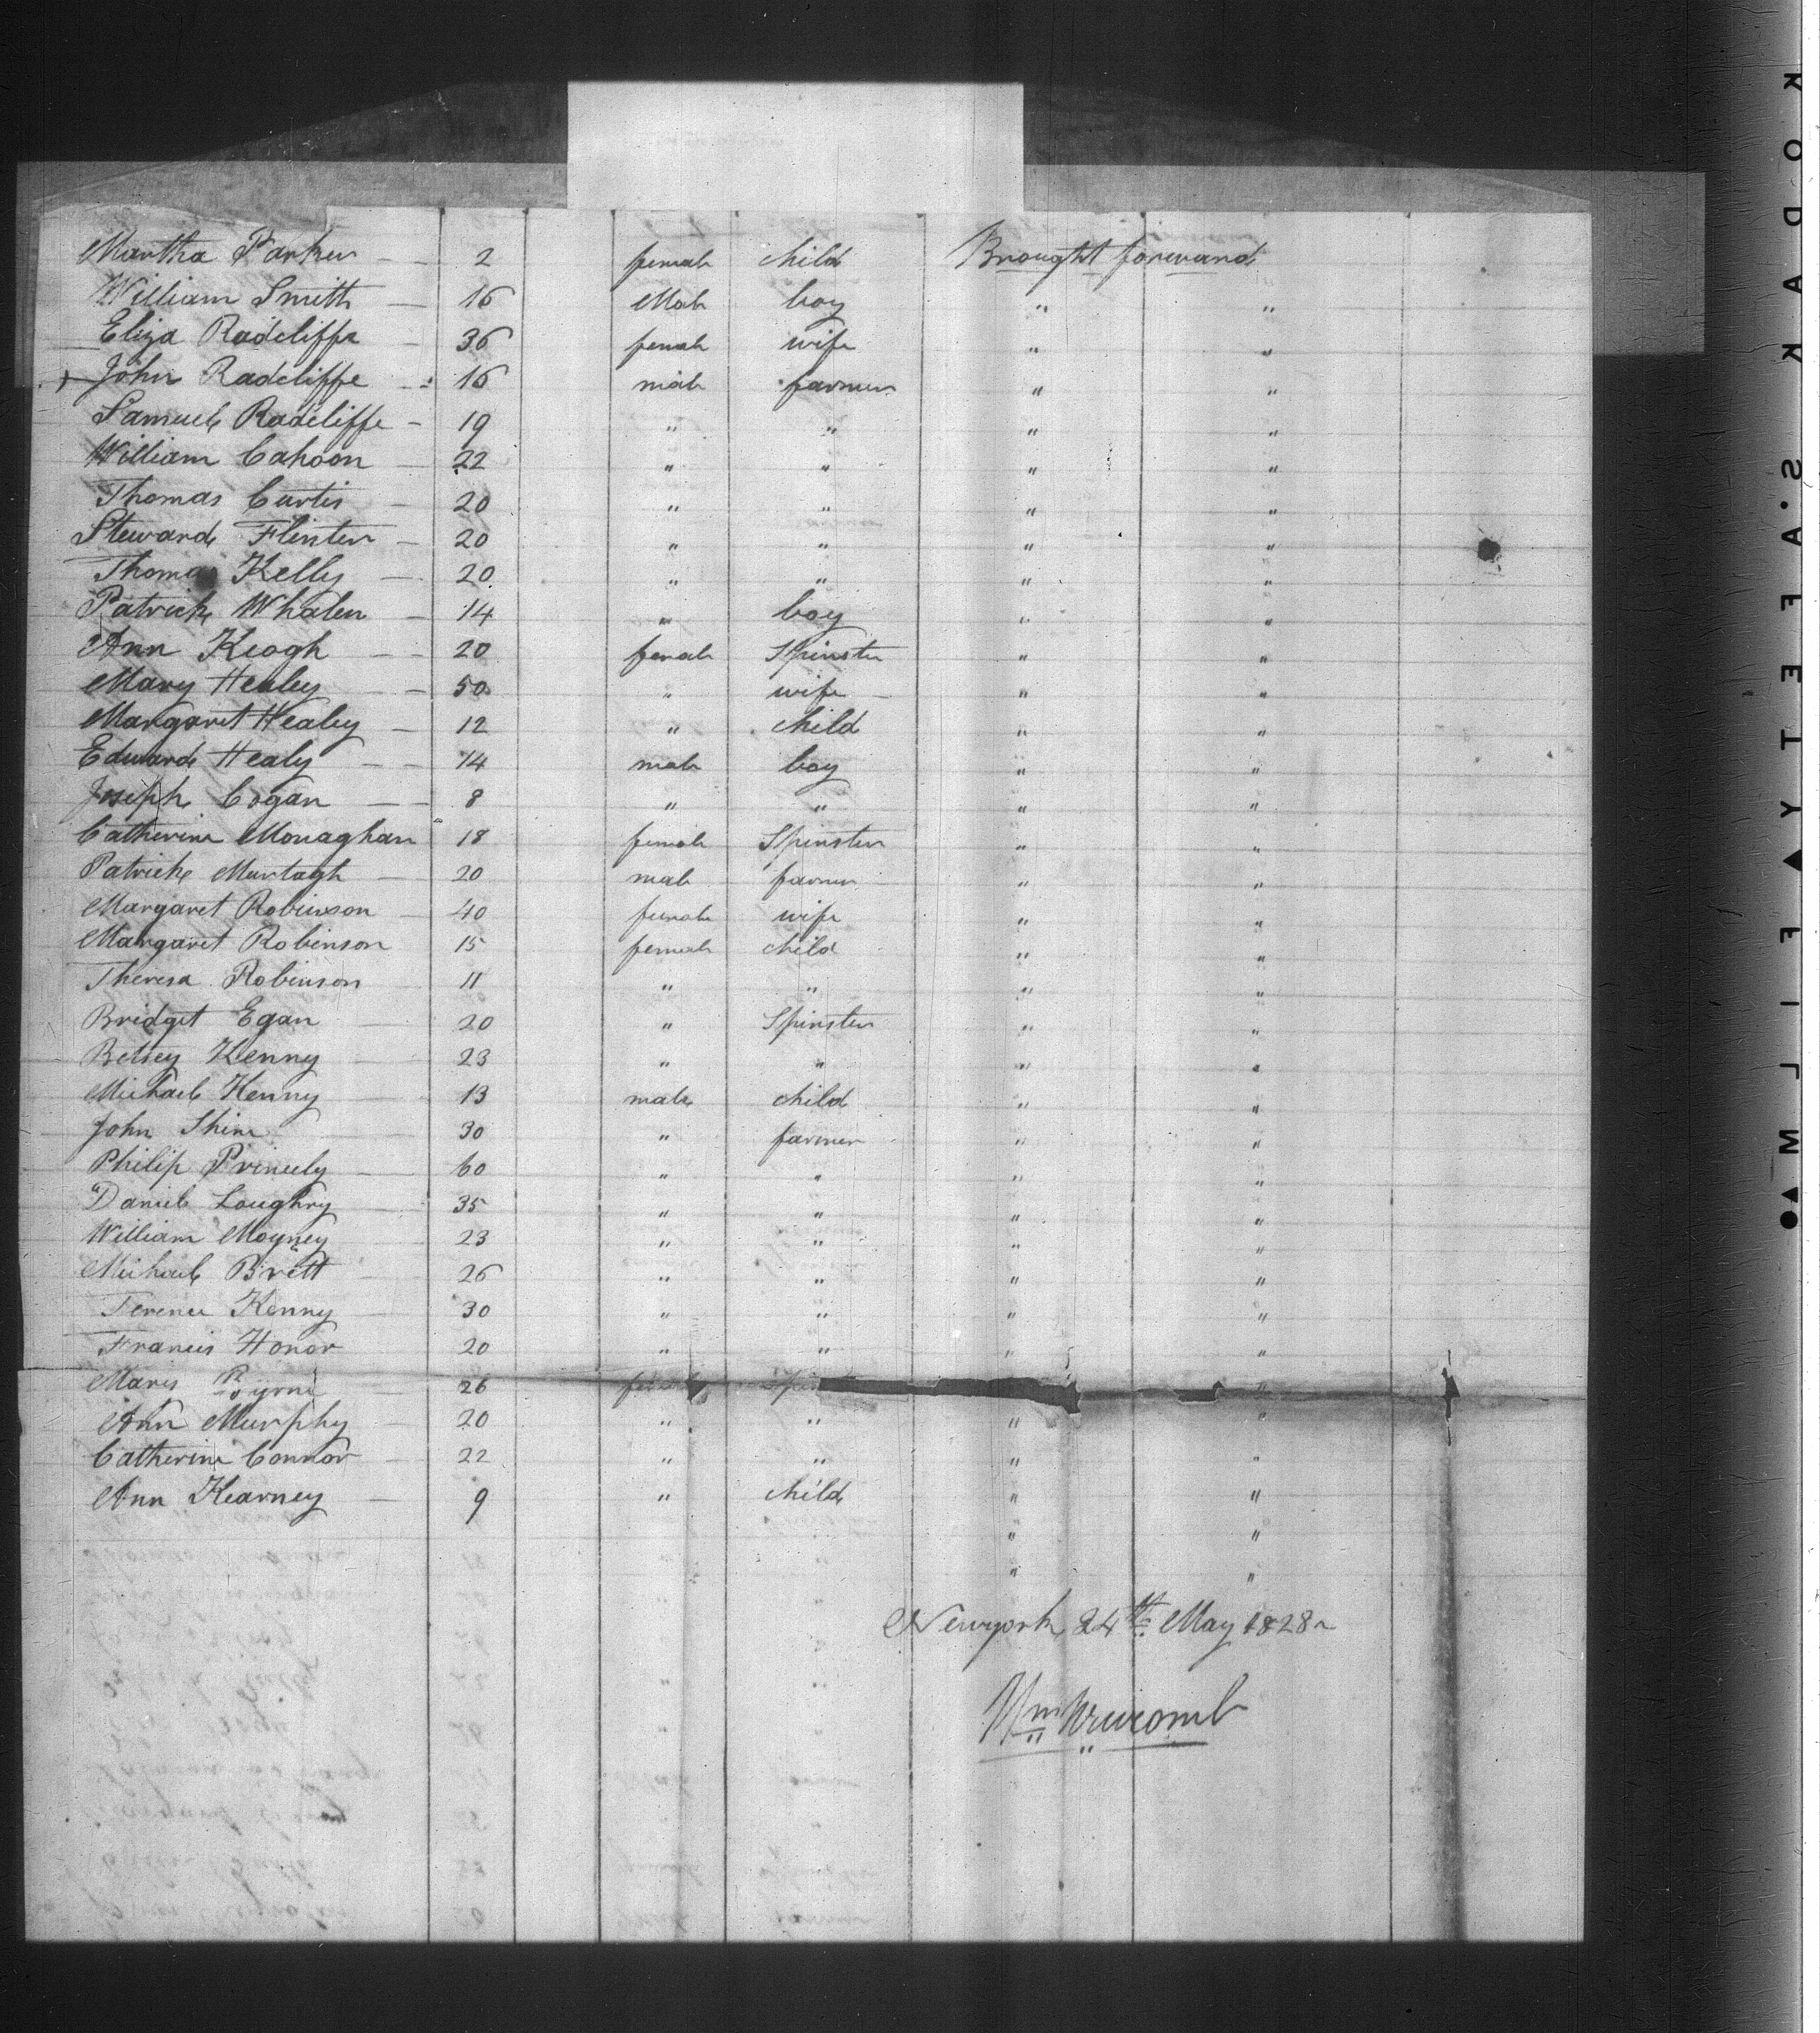 Martha Parker — — 2 female child Brought forward
William Smith — 16 Male boy " "
Eliza Radcliffe — 36 female wife " "
John Radcliffe — 16 male farmer " "
Samuel Radcliffe — 19 " " " "
William Cahoon — 22 " " " "
Thomas Curtis — 20 " " " "
Steward Flinter — 20 " " " "
Thomas Kelly — 20 " " " "
Patrick Whalen — 14 " boy " "
Ann Keogh — — 20 female Spinster " "
Mary Healey — — 50 " wife " "
Margaret Healey — 12 " child " "
Edward Healy — — 14 male boy " "
Joseph Cogan — — 8 " " " "
Catherine Monaghan 18 female Spinster " "
Patrick Murtagh — 20 male farmer " "
Margaret Robinson — 40 female wife " "
Margaret Robinson 15 female child " "
Theresa Robinson 11 " " " "
Bridget Egan — 20 " Spinster " "
Betsey Kenny — 23 " " " "
Michael Kenny — 13 male child " "
John Shine — 30 " farmer " "
Philip — 60 " " " "
Daniel Loughry — 35 " " " "
William Moyney — 23 " " " "
Michael Brett — 26 " " " "
Terence Kenny — 30 " " " "
Francis Honor — 20 " " " "
Mary Byrne — 26 "
Ann Murphy — 20 " " " "
Catherine Connor — 22 " " " "
Ann Kearney — 9 " child " "
" "
" "
Newyork 24th May 1828
Wm Newcomb
KODAK SAFETY FILM